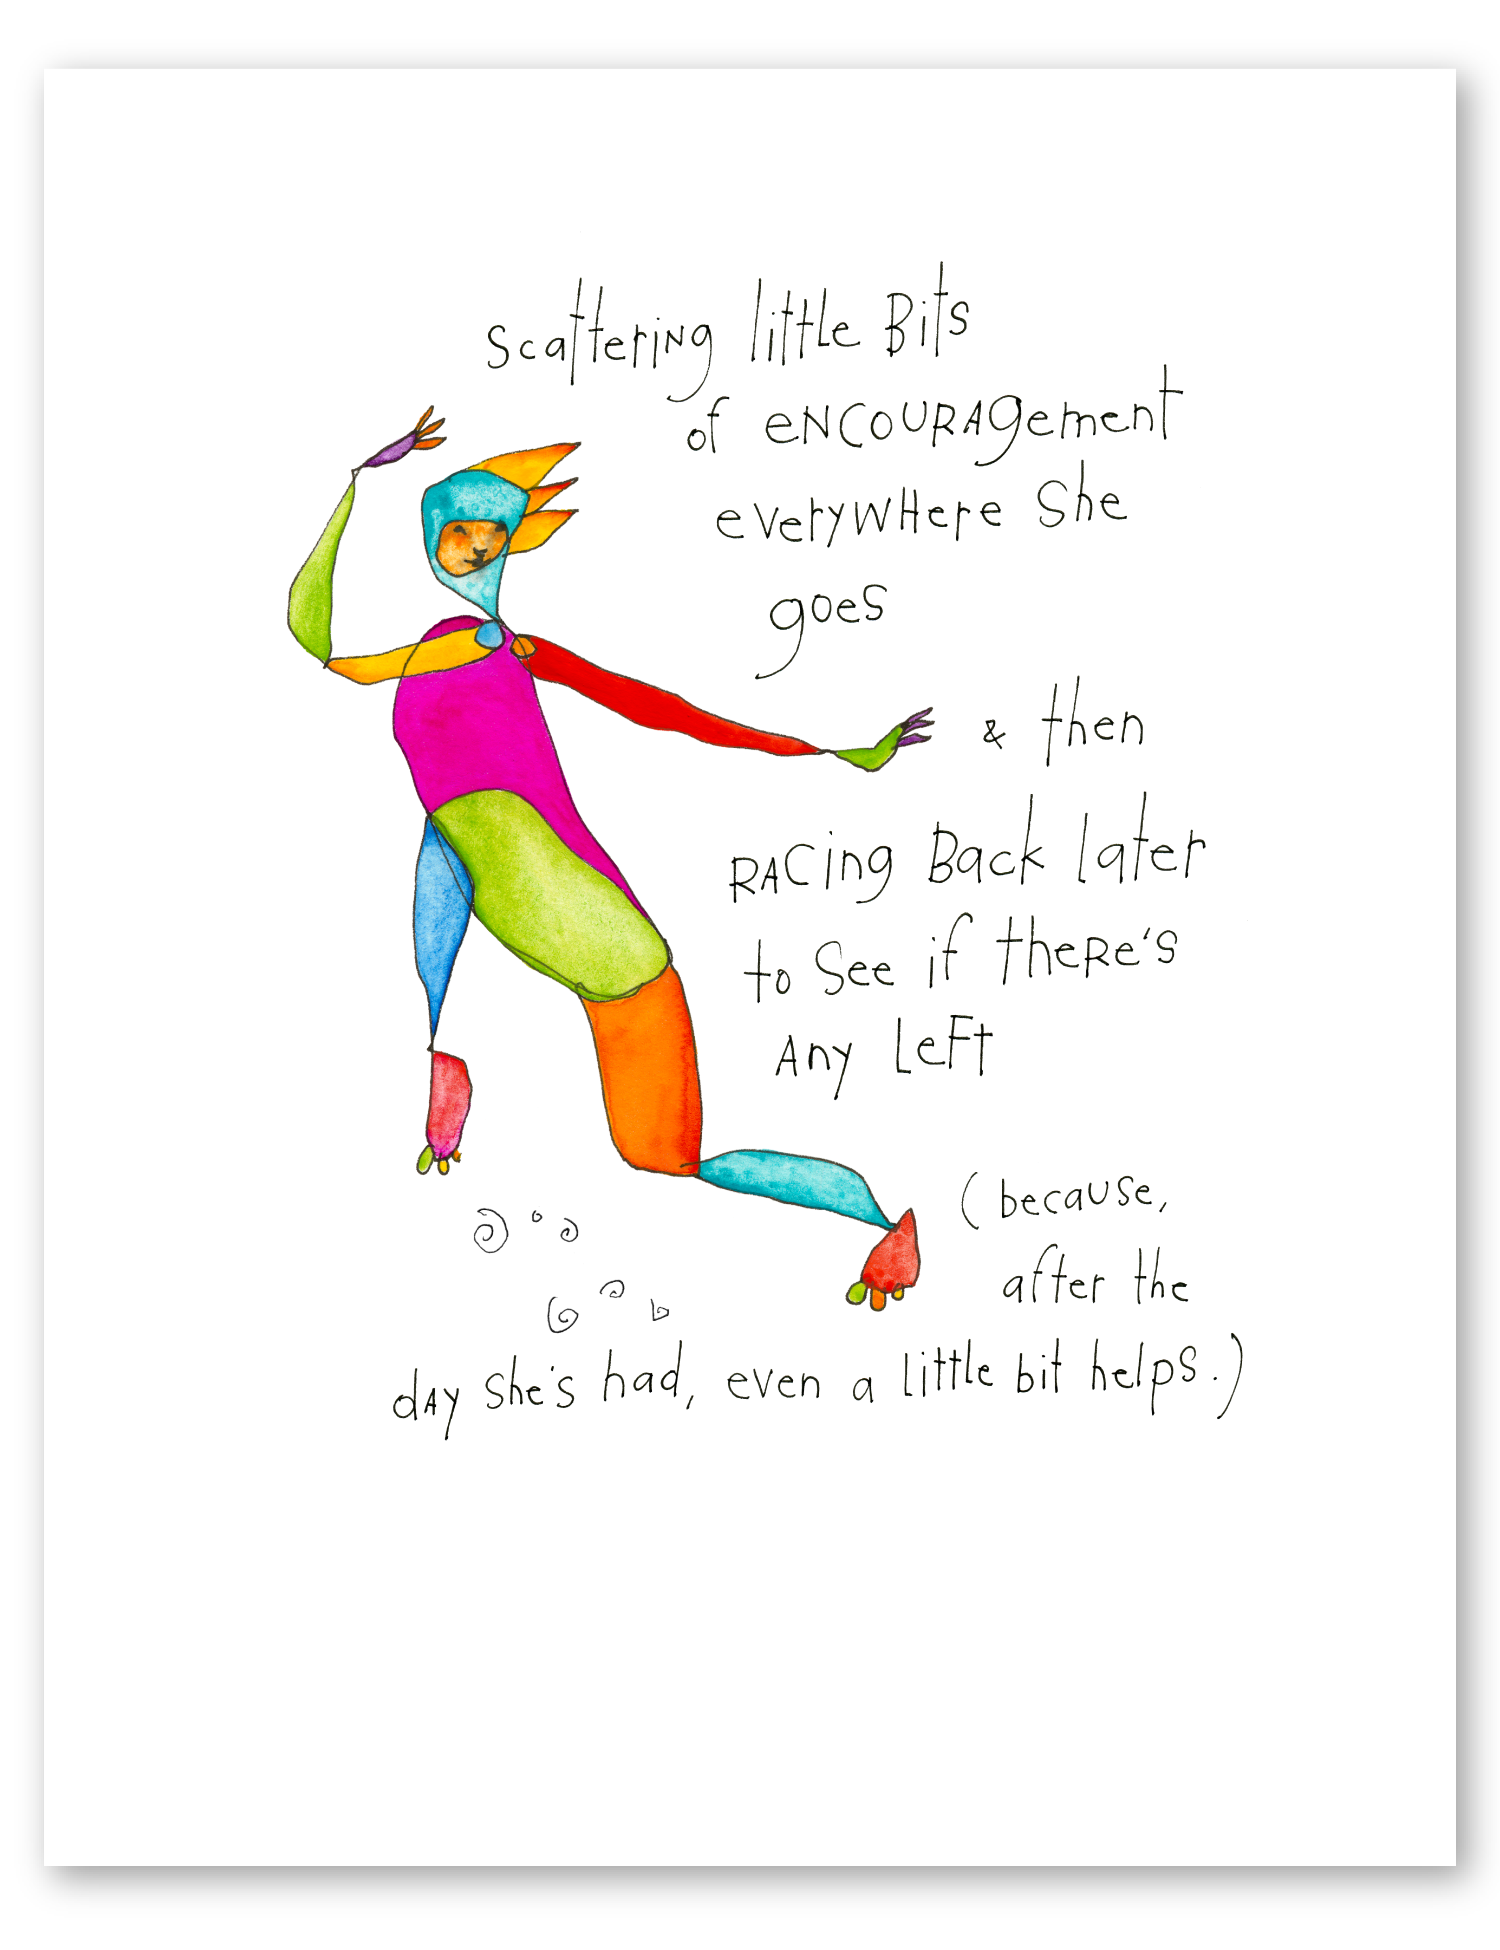 scattering little Bits
of eNCOURAgement
everywHere She
goes
& then
RACing Back later
to See if theRe's
Any LeFt
(because,
after the
dAy She's had, even a little bit helps.)